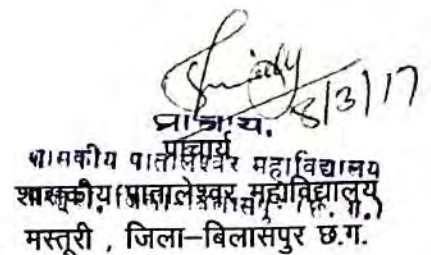 8/3/17
प्राचार्य.
प्राचार्य
शासकीय पातालेश्वर महाविद्यालय
शासकीय पातालेश्वर महाविद्यालय
मस्तूरी , जिला–बिलासपुर छ.ग.